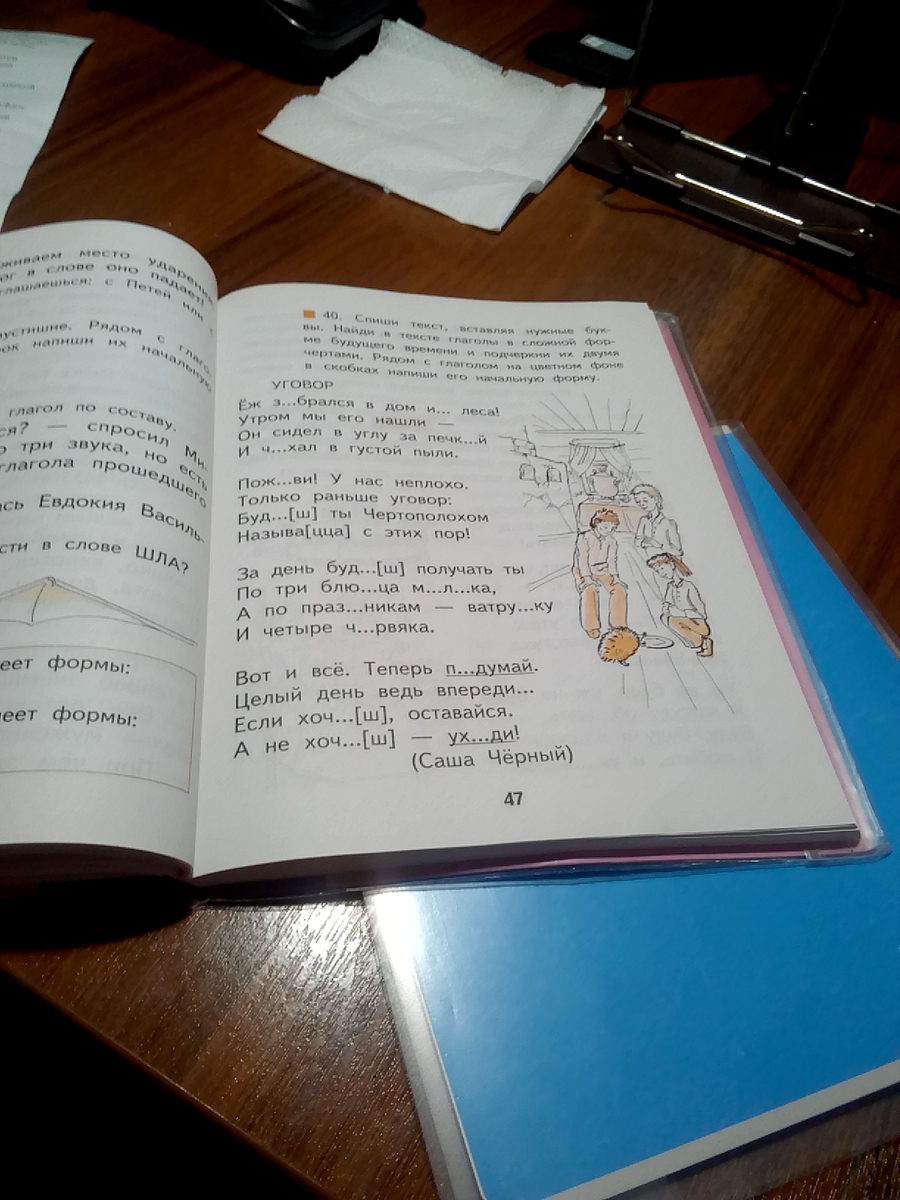 живаем место ударения
ог в слове оно падает
глашаешься: с Петей или
устишне. Рядом с
рок напиши их начальную
глагол по составу.
ся? — спросил Ми-
о три звука, но есть
глагола прошедшего
ась Евдокия Василь-
сти в слове ШЛА?
еет формы:
меет формы:
40. Спиши текст, вставляя нужные бук-
вы. Найди в тексте глаголы в сложной фор-
ме будущего времени и подчеркни их двумя
чертами. Рядом с глаголом на цветном фоне
в скобках напиши его начальную форму.
УГОВОР
Ёж з...брался в дом и... леса!
Утром мы его нашли —
Он сидел в углу за печк...й
И ч...хал в густой пыли.
Пож...ви! У нас неплохо.
Только раньше уговор:
Буд...[ш] ты Чертополохом
Называ[цца] с этих пор!
За день буд...[ш] получать ты
По три блю...ца м...л...ка,
А по праз...никам — ватру...ку
И четыре ч...рвяка.
Вот и всё. Теперь п...думай.
Целый день ведь впереди...
Если хоч...[ш], оставайся.
А не хоч...[ш] — ух...ди!
(Саша Чёрный)
47